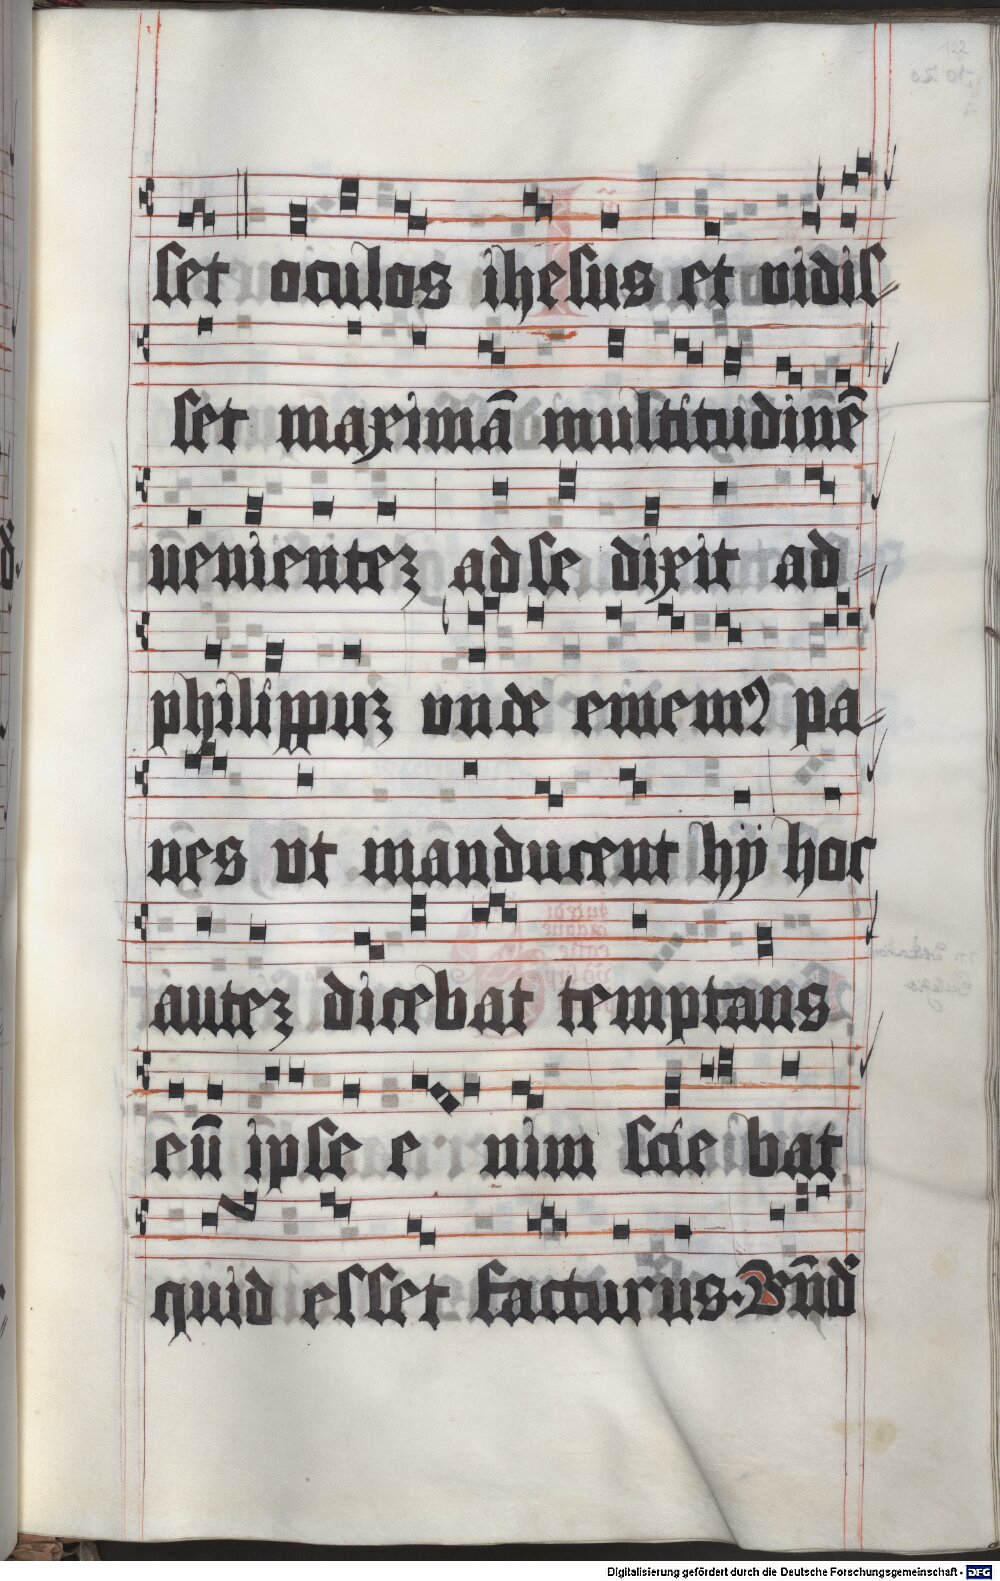 set oculos ihesus et vidis
set maximā multitudinē
uenientez ad se dixit ad
philippuz vnde ememꝰ pa
nes vt manducent hij hoc
autez dicebat temptans
eū ipse e nim scie bat
quid esset facturus. Bn̄d
Digitalisierung gefördert durch die Deutsche Forschungsgemeinschaft - DFG